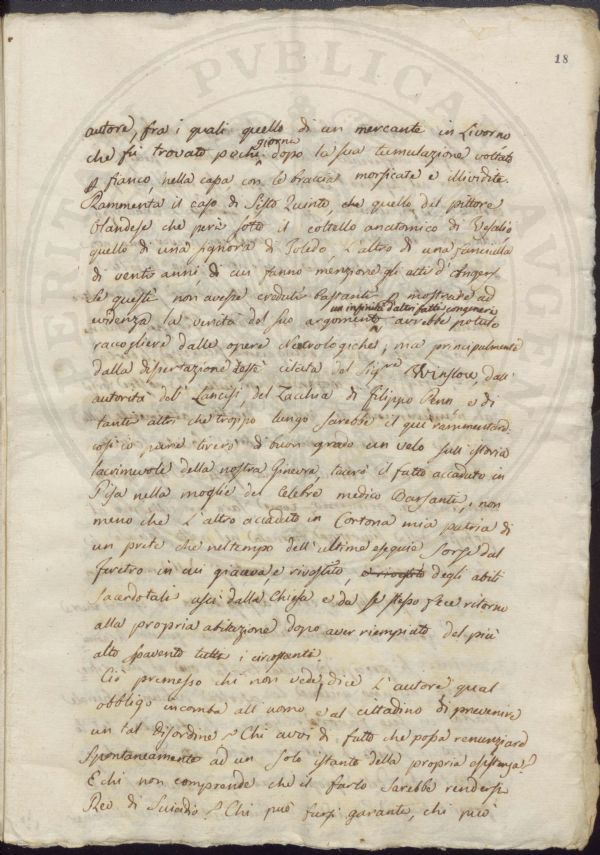 18
autore, fra i quali quello di un mercante in Livorno
che fù trovato pochi giorni dopo la sua tumulazione voltato
fianco, nella cassa con le braccia morsicate e illividite.
Rammenta il caso di Sisto Quinto, che quello del pittore
Olandese che perì sotto il coltello anatomico di Vesalio
quello di una signora di Toledo, l'altro di una fanciulla
di venti anni di cui fanno menzione gli atti d'
Se questi non avesse creduti bastanti a mostrare ad
evidenza la verità del suo argomento un infinità d'altri fatti congeneri avrebbe potuto
raccogliere dalle opere Necrologiche, ma principalmente
dalla dissertazione citata del Sigre Winslow, dall'
autorità del Lancisi, del Zacchia di Filippo Penn, e di
tanti altri che troppo lungo sarebbe il qui rammentare.
così io pure tirerò di buon grado un velo sull'istoria
lacrimevole della nostra Ginevra, tacerò il fatto accaduto in
Pisa nella moglie del Celebre medico Barsanti, non
meno che l'altro accaduto in Cortona mia patria di
un prete che nel tempo dell'ultime esequie sorse dal
feretro in cui giaceva e rivestito, e rivestito degli abiti
Sacerdotali uscì dalla Chiesa e da se stesso fece ritorno
alla propria abitazione dopo aver riempiato del più
alto spavento tutti i circostanti.
Ciò premesso chi non vede, dice l'autore qual
obbligo incomba all'uomo e al cittadino di prevenire
un tal disordine? Chi avvi di fatto che possa renunziare
spontaneamente ad un solo istante della propria esistenza?
E chi non comprende che il farlo sarebbe rendersi
Reo di Suicidio? Chi può farsi garante, chi può